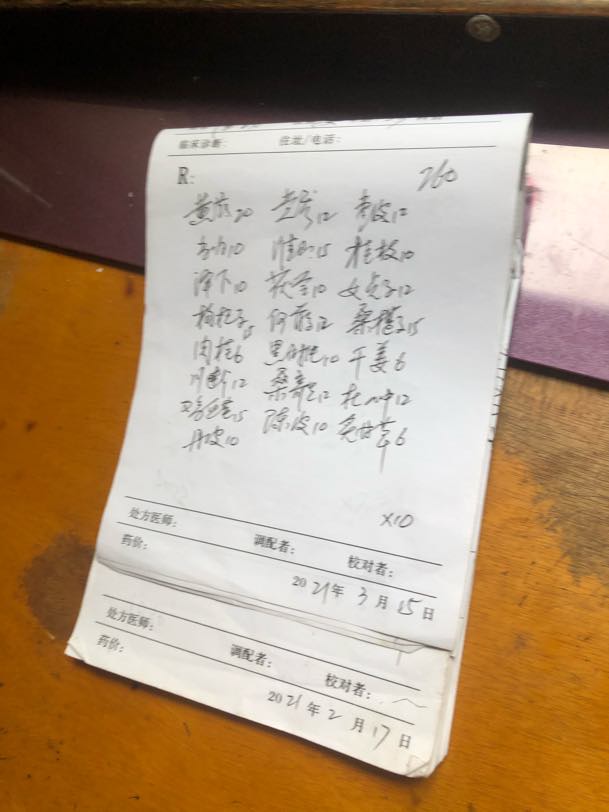 临床诊断： 住址/电话：
R： 760
黄芪20 党参12 青皮12
10 15 桂枝10
泽下10 茯苓10 女贞子12
枸杞子15 何首12 桑椹子15
肉桂6 黑 10 干姜6
川断12 桑寄12 杜仲12
15 陈皮10 炙甘草6
丹皮10
x10
处方医师：
药价： 调配者： 校对者：
2021年3月15日
处方医师：
药价： 调配者： 校对者：
2021年2月17日